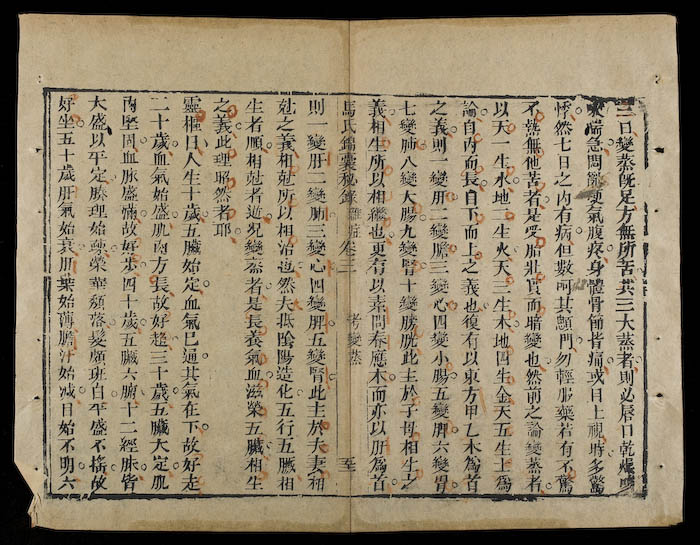 三日變蒸既足方無所苦其三大蒸者則必辰口乾燥咳
喘急悶亂哽氣腹疼身體骨節皆痛或目上視時多驚
悸然七日之內有病但數呵其顖門勿輕服藥若有不驚
不熱無他苦者是受胎壯實而暗變也然前之論變蒸者
以天一生水地二生火天三生木地四生金天五生土爲
論自內而長自下而上之義也復有以東方甲乙木爲首
之義則一變肝二變膽三變心四變小腸五變脾六變胃
七變肺八變大腸九變腎十變膀胱此主於子母相生之
義相生所以相繼也更有以素問春應木而亦以肝爲首
馬氏錦囊秘錄 雜症卷三 考變蒸 至
則一變肝二變肺三變心四變脾五變腎此主於夫妻相
尅之義相尅所以相治也然夫抵陰陽造化五行五臟相
生者順相尅者逆況變蒸者是長養氣血滋榮五臟相生
之義此理昭然者耶
靈樞曰人生十歲五臟始定血氣巳通其氣在下故好走
二十歲血氣始盛肌肉方長故好趨三十歲五臟大定肌
肉堅固血脉盛滿故好步四十歲五臟六腑十二經脉皆
大盛以平定腠理始疎榮華頹落髮頗班白平盛不搖故
好坐五十歲肝氣始衰肝葉始薄膽汁始減目始不明六